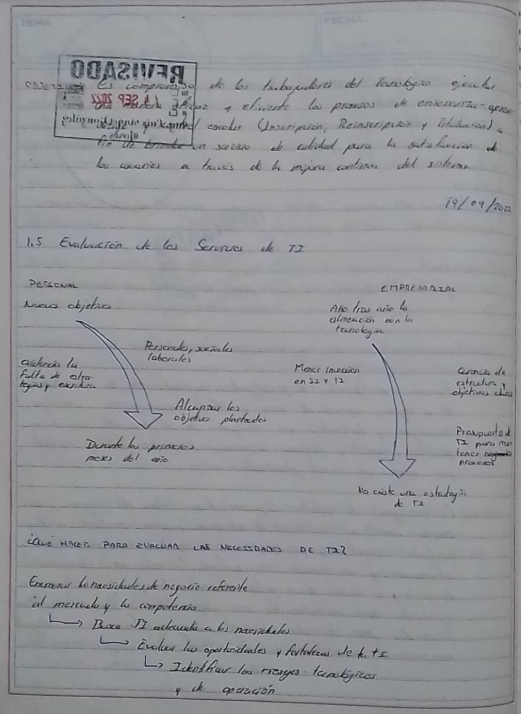 REVISADO
SEP 2022
Es compromiso de los trabajadores del Tecnológico ejecutar
y eficiente los procesos de enseñanza-apren
escolar (Inscripción, Reinscripción y Titulación) a
fin de brindar un servicio de calidad para la satisfacción de
los usuarios a través de la mejora continua del sistema
19/09/2022
1.5 Evaluación de los Servicios de TI
PERSONAL
Nuevos objetivos
Personales, sociales
laborales
Falta de
Alcanzar los
objetivos planteados
Durante los primeros
meses del año
EMPRESARIAL
Año tras año la
alineación con la
tecnología
Menor inversión
en SI y TI
Carencia de
estructura y
objetivos claros
Presupuesto de
TI para man
tener
procesos
No existe una estrategia
de TI
¿QUÉ HACER PARA EVALUAR LAS NECESIDADES DE TI?
necesidades de negocio referente
al mercado y la competencia
Busca TI adecuada a las necesidades
Evaluar las oportunidades y fortalezas de la TI
Identificar los riesgos tecnológicos
y de operación